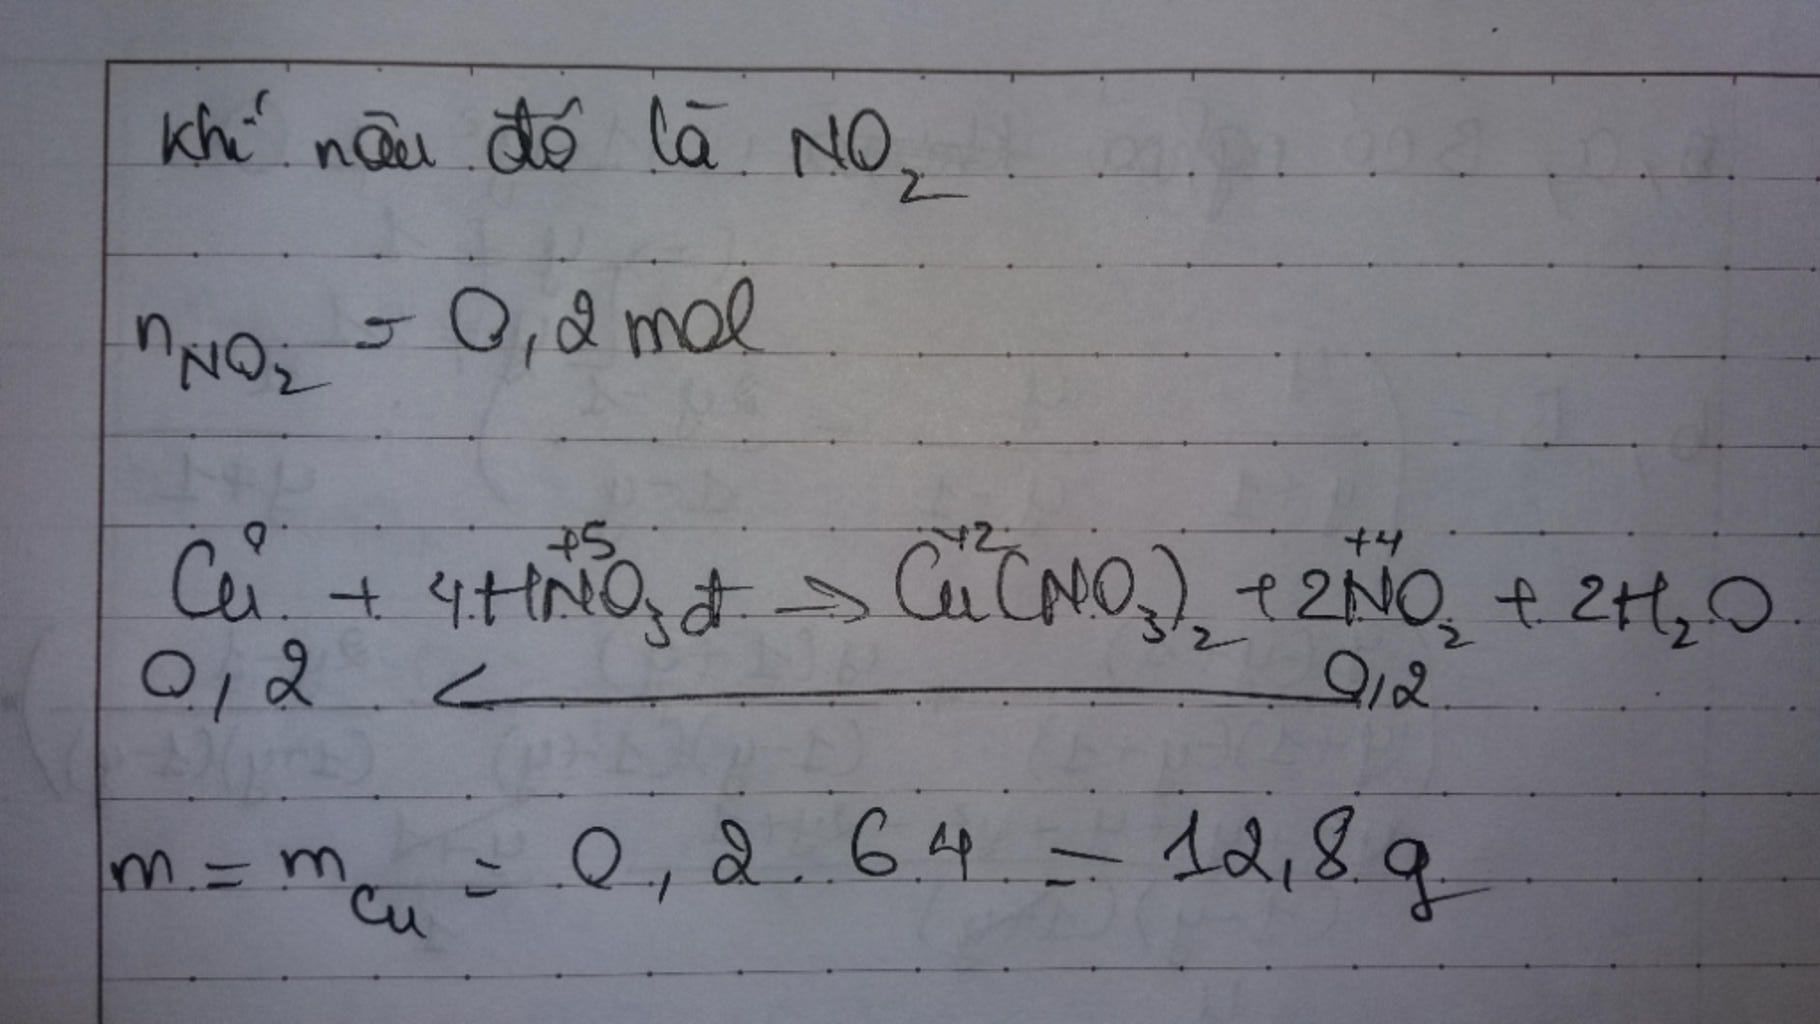 khí nâu đó là NO₂
n NO₂ = 0,2 mol
0 +5 +2 +4
Cu + 4HNO₃đ → Cu(NO₃)₂ + 2NO₂ + 2H₂O
0,2 ← 0,2
m = m Cu = 0,2 . 64 = 12,8 g